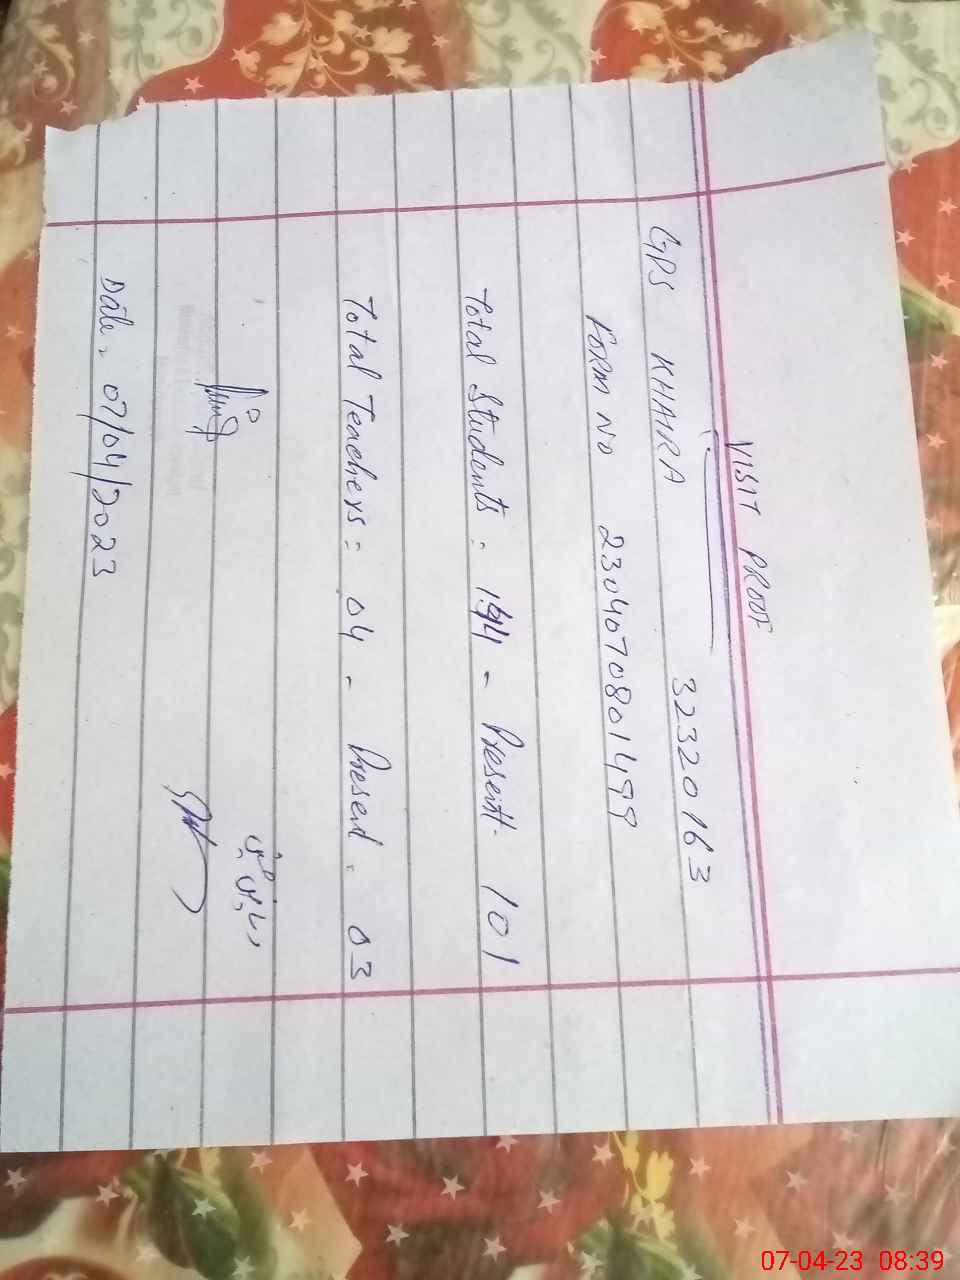 VISIT PROOF
GPS KHAIRA 32320163
FORM NO 2304070801499
Total Students: 194 - Present 101
Total Teachers: 04 - Present. 03
Date. 07/04/2023
07-04-23 08:39